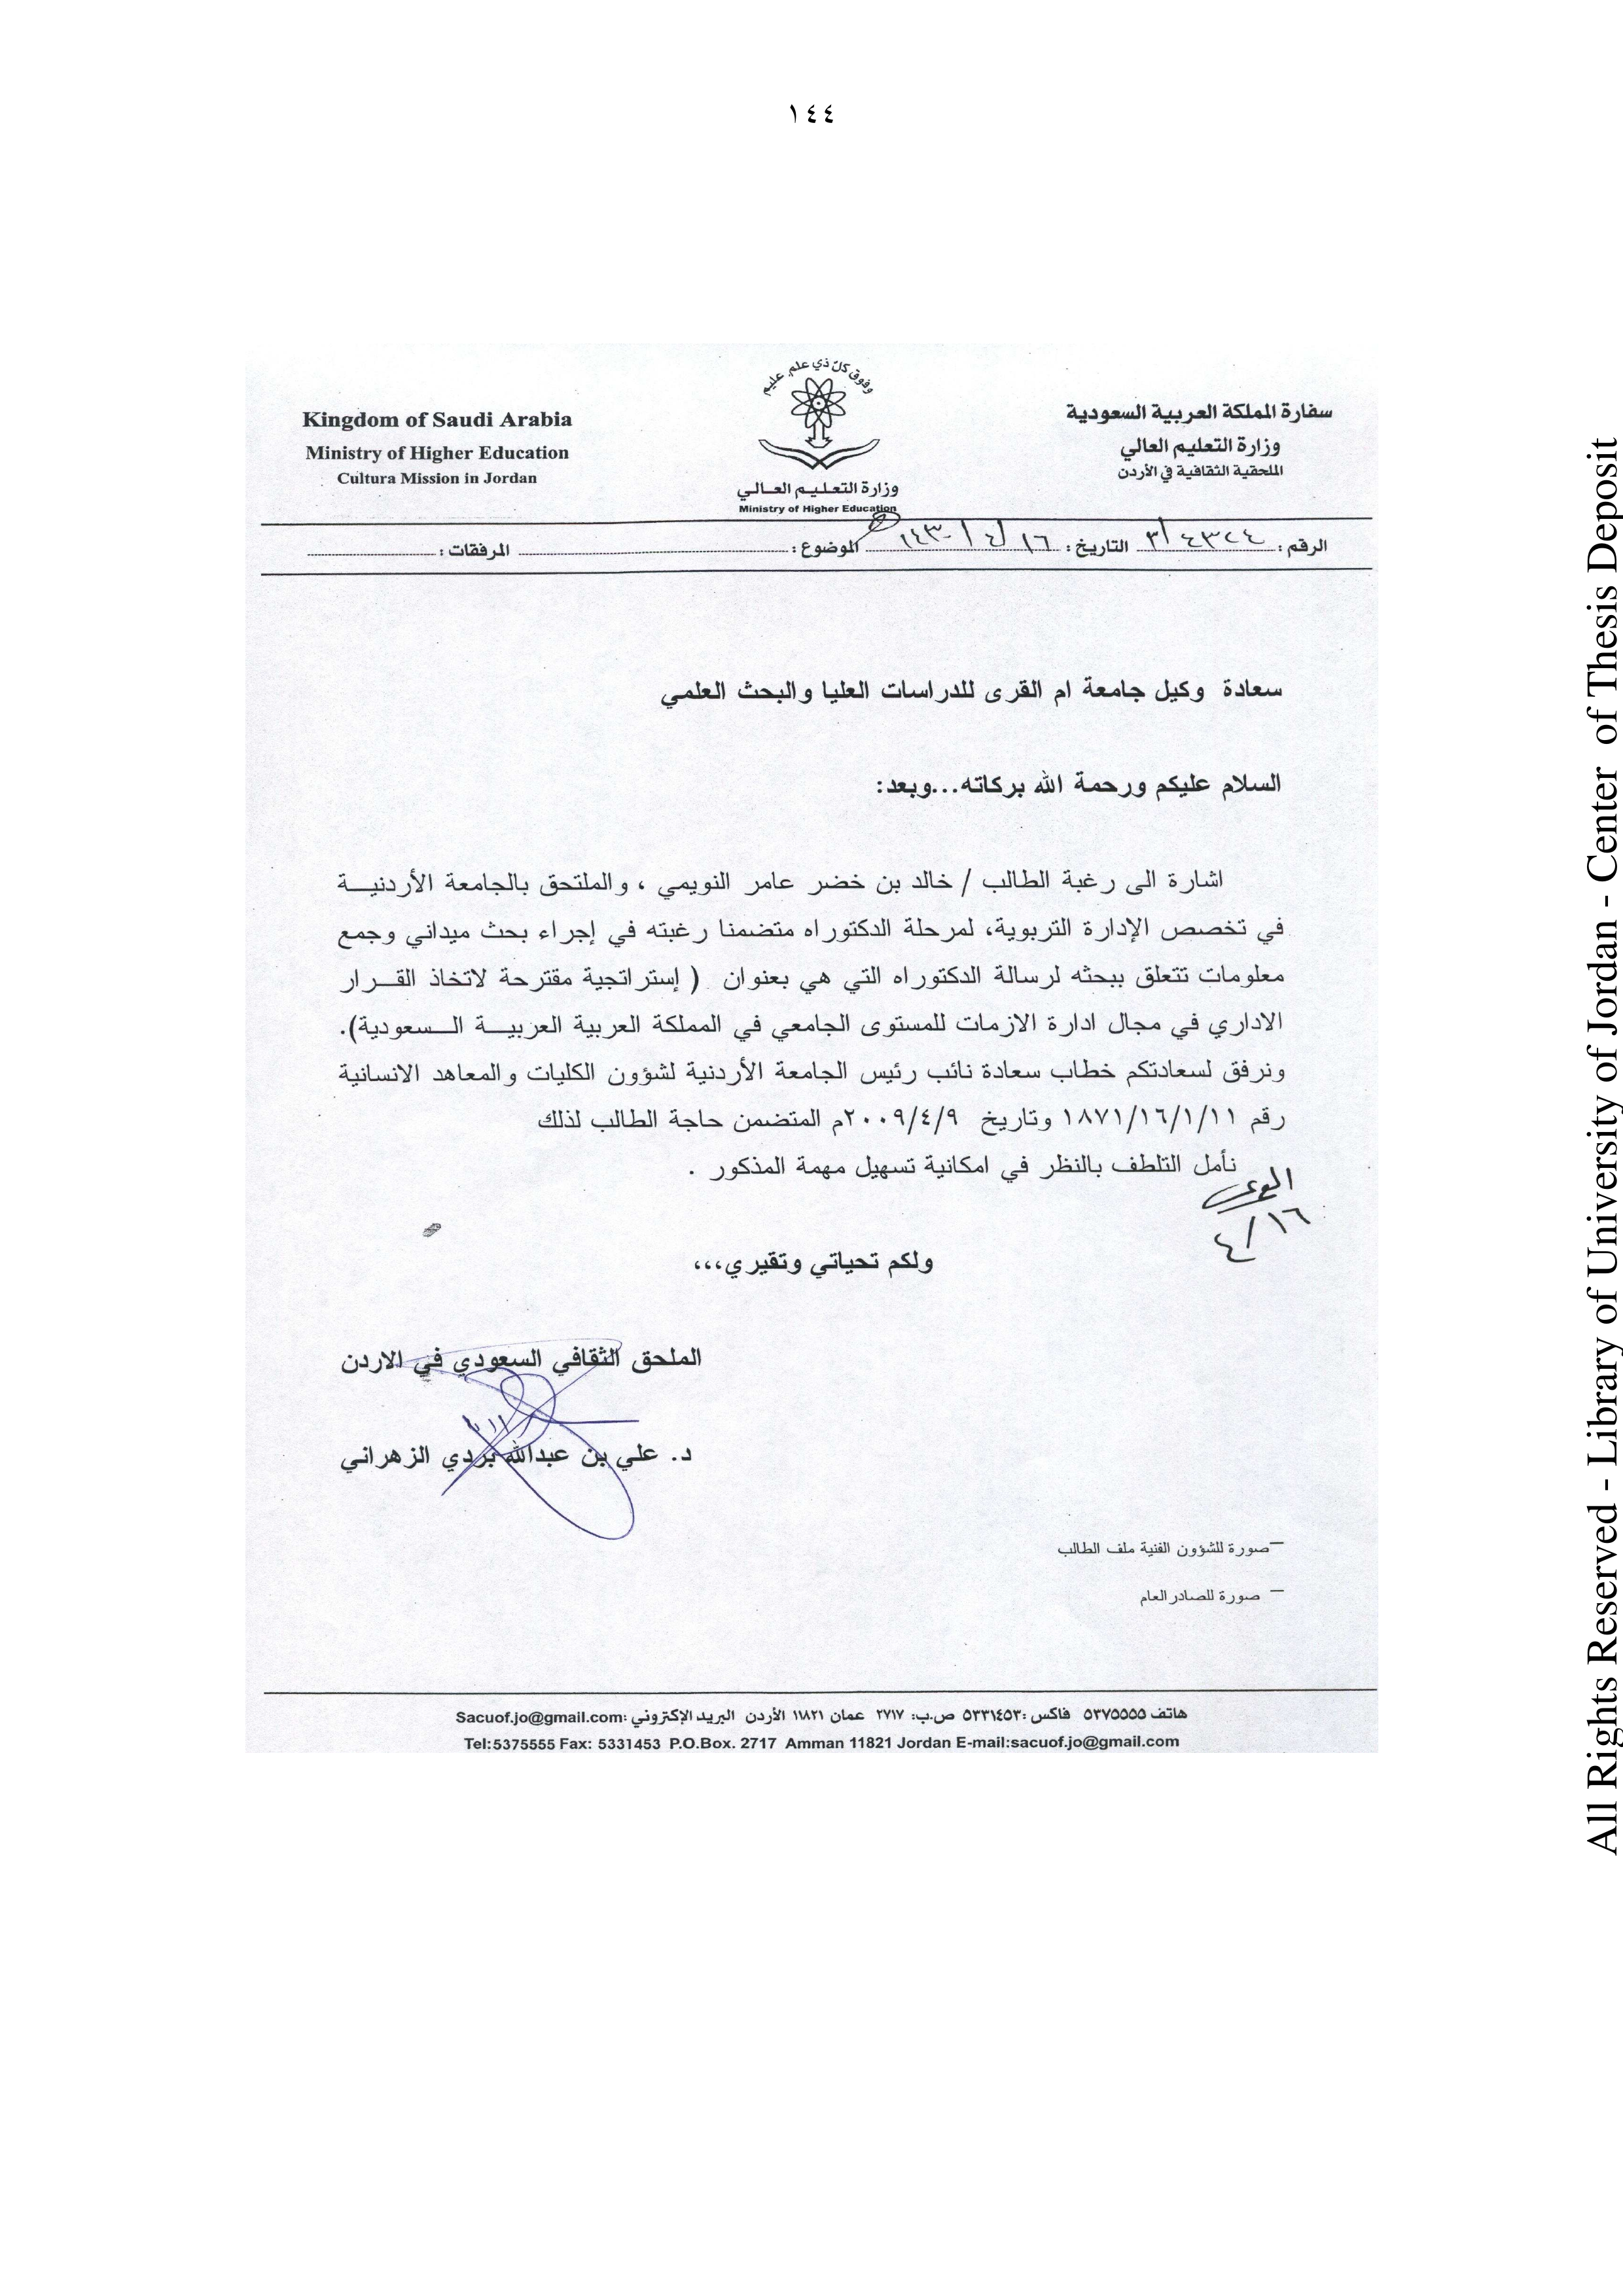 ١٤٤
وفوق كلّ ذي علم عليم
Kingdom of Saudi Arabia
Ministry of Higher Education
Cultura Mission in Jordan
وزارة التعليم العالي
Ministry of Higher Education
سفارة المملكة العربية السعودية
وزارة التعليم العالي
الملحقية الثقافية في الأردن
الرقم : ٤٣٢٤/٣ التاريخ : ١٦/٤/١٤٣٠هـ الموضوع : المرفقات :
سعادة وكيل جامعة ام القرى للدراسات العليا والبحث العلمي
السلام عليكم ورحمة الله بركاته...وبعد:
اشارة الى رغبة الطالب / خالد بن خضر عامر النويمي ، والملتحق بالجامعة الأردنيـــة
في تخصص الإدارة التربوية، لمرحلة الدكتوراه متضمنا رغبته في إجراء بحث ميداني وجمع
معلومات تتعلق ببحثه لرسالة الدكتوراه التي هي بعنوان ( إستراتجية مقترحة لاتخاذ القـــرار
الاداري في مجال ادارة الازمات للمستوى الجامعي في المملكة العربية العربيـــة الـــسعودية).
ونرفق لسعادتكم خطاب سعادة نائب رئيس الجامعة الأردنية لشؤون الكليات والمعاهد الانسانية
رقم ١٨٧١/١٦/١/١١ وتاريخ ٢٠٠٩/٤/٩م المتضمن حاجة الطالب لذلك
نأمل التلطف بالنظر في امكانية تسهيل مهمة المذكور .
١٦/٤
ولكم تحياتي وتقيري،،،
الملحق الثقافي السعودي في الاردن
د. علي بن عبدالله بردي الزهراني
–صورة للشؤون الفنية ملف الطالب
– صورة للصادر العام
هاتف ٥٣٧٥٥٥٥ فاكس :٥٣٣١٤٥٣ ص.ب: ٢٧١٧ عمان ١١٨٢١ الأردن البريد الإكتروني :Sacuof.jo@gmail.com
Tel:5375555 Fax: 5331453 P.O.Box. 2717 Amman 11821 Jordan E-mail:sacuof.jo@gmail.com
All Rights Reserved - Library of University of Jordan - Center of Thesis Deposit